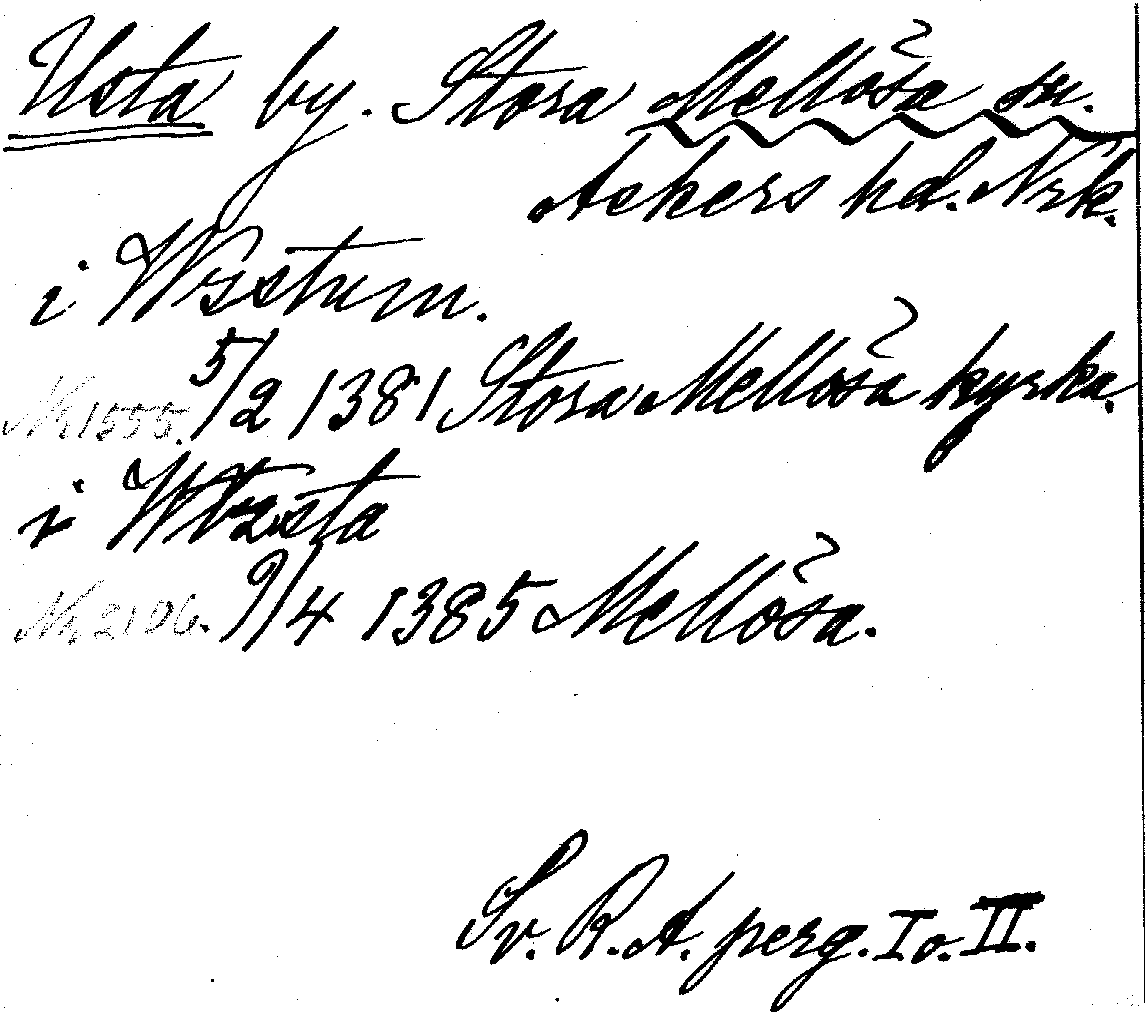 Usta by. Stora Mellösa sn.
Askers hd. Nrk.
i Wzstum.
Nr 1555. 5/2 1381 Stora Mellösa kyrka.
i
Nr 2106. 9/4 1385 Mellösa.
Sv. R. A. perg. I o. II.